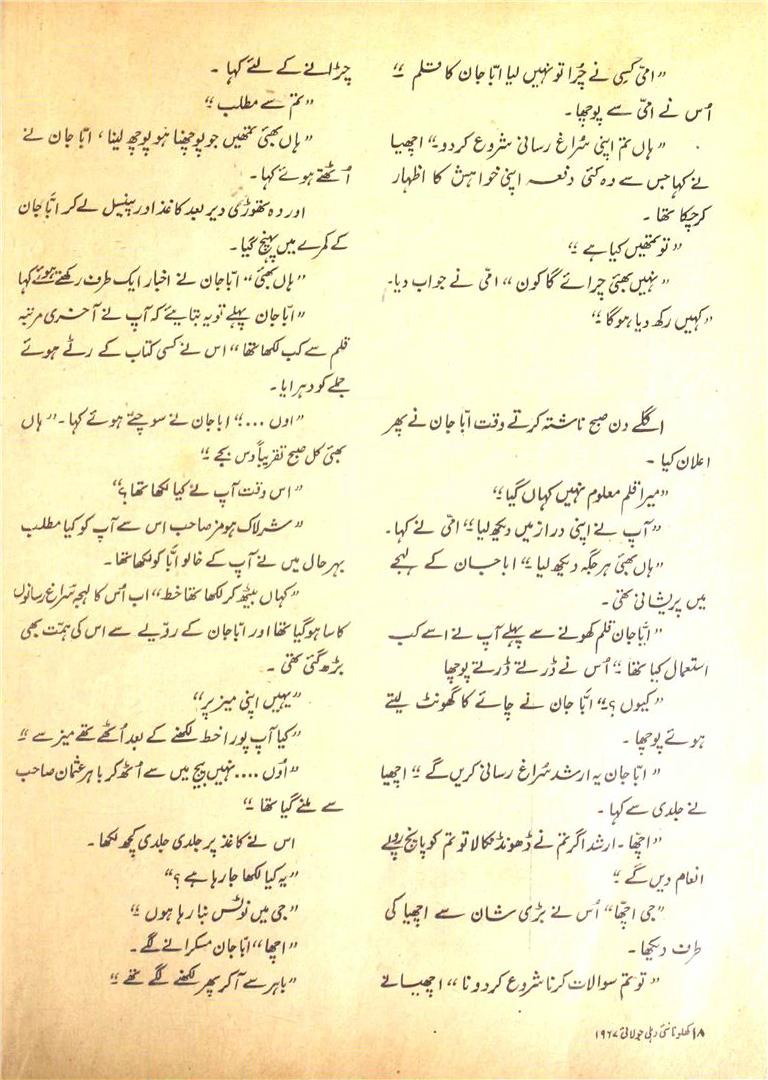 ”امّی کسی نے چُرا تو نہیں لیا ابّا جان کا قلم“
اُس نے امّی سے پوچھا۔
”ہاں تم اپنی سُراغ رسانی شروع کردو۔“ اچھیا
نے کہا جس سے وہ کئی دفعہ اپنی خواہش کا اظہار
کرچکا تھا۔
”تو تمھیں کیا ہے“
”نہیں بھئی چرائے گا کون“ امّی نے جواب دیا۔
”کہیں رکھ دیا ہوگا“
اگلے دن صبح ناشتہ کرتے وقت ابّا جان نے پھر
اعلان کیا۔
”میرا قلم معلوم نہیں کہاں گیا“
”آپ نے اپنی دراز میں دیکھ لیا“ امّی نے کہا۔
”ہاں بھئی ہر جگہ دیکھ لیا“ ابا جان کے لہجے
میں پریشانی تھی۔
”ابّا جان قلم کھونے سے پہلے آپ نے اسے کب
استعمال کیا تھا“ اُس نے ڈرتے ڈرتے پوچھا
”کیوں؟“ ابّا جان نے چائے کا گھونٹ لیتے
ہوئے پوچھا۔
”ابّا جان یہ ارشد سُراغ رسانی کریں گے“ اچھیا
نے جلدی سے کہا۔
”اچّھا۔ ارشد اگر تم نے ڈھونڈ نکالا تو تم کو پانچ روپے
انعام دیں گے“
”جی اچّھا“ اُس نے بڑی شان سے اچھیا کی
طرف دیکھا۔
”تو تم سوالات کرنا شروع کردو نا“ اچھیا نے
چڑانے کے لئے کہا۔
”تم سے مطلب“
”ہاں بھئی تمھیں جو پوچھنا ہو پوچھ لینا، ابّا جان نے
اُٹھتے ہوئے کہا۔
اور وہ تھوڑی دیر بعد کاغذ اور پنسل لے کر ابّا جان
کے کمرے میں پہنچ گیا۔
”ہاں بھئی“ ابّا جان نے اخبار ایک طرف رکھتے ہوئے کہا
”ابّا جان پہلے تو یہ بتایئے کہ آپ نے آخری مرتبہ
قلم سے کب لکھا تھا“ اس نے کسی کتاب کے رٹے ہوئے
جملے کو دہرایا۔
”اوں ...“ ابا جان نے سوچتے ہوئے کہا۔ ”ہاں
بھئی کل صبح تقریباً دس بجے“
”اس وقت آپ نے کیا لکھا تھا؟“
”شرلاک ہومز صاحب اس سے آپ کو کیا مطلب
بہر حال میں نے آپ کے خالو ابّا کو لکھا تھا۔
”کہاں بیٹھ کر لکھا تھا خط“ اب اُس کا لہجہ سُراغ رسانوں
کا سا ہوگیا تھا اور ابّا جان کے رویّے سے اس کی ہمّت بھی
بڑھ گئی تھی۔
”یہیں اپنی میز پر“
”کیا آپ پورا خط لکھنے کے بعد اُٹھے تھے میز سے“
”اُوں .... نہیں بیچ میں سے اُٹھ کر باہر عثمان صاحب
سے ملنے گیا تھا“
اس نے کاغذ پر جلدی جلدی کچھ لکھا۔
”یہ کیا لکھا جارہا ہے؟“
”جی میں نوٹس بنا رہا ہوں“
”اچھا“ ابّا جان مسکرانے لگے۔
”باہر سے آکر پھر لکھنے لگے تھے“
۱۸ کھلونا نئی دہلی جولائی ۱۹۶۷